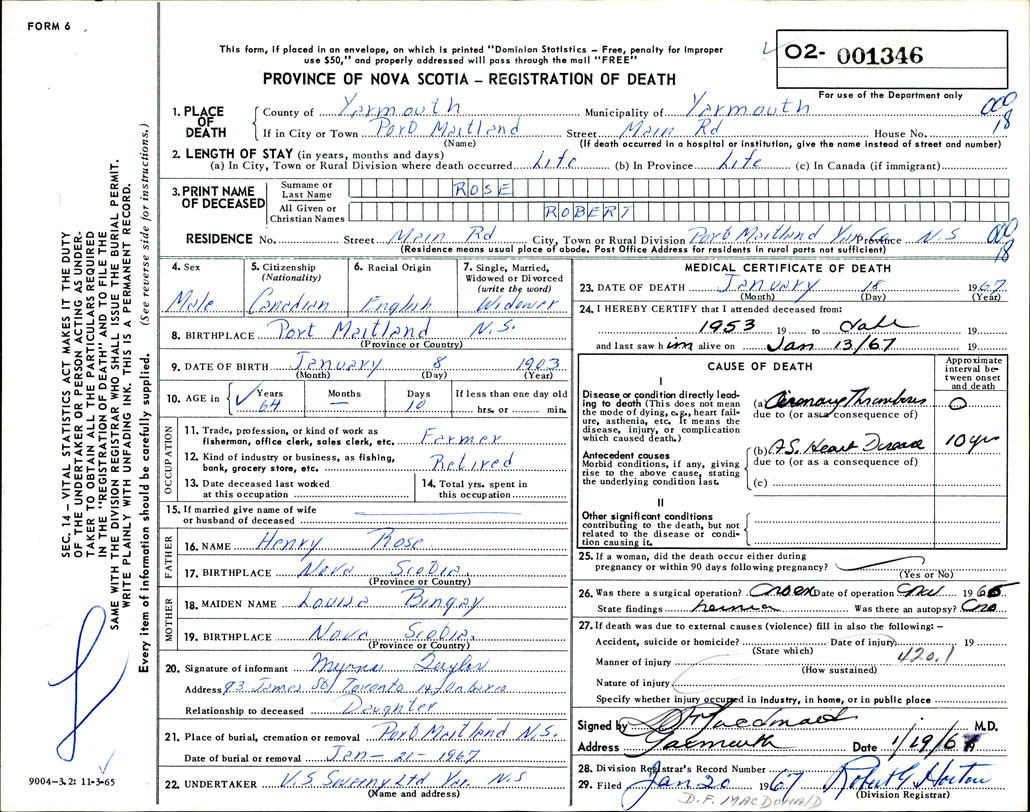 FORM 6
This form, if placed in an envelope, on which is printed "Dominion Statistics – Free, penalty for improper
use $50," and properly addressed will pass through the mail "FREE"
O2- 001346
PROVINCE OF NOVA SCOTIA – REGISTRATION OF DEATH
For use of the Department only
1. PLACE OF DEATH County of Yarmouth Municipality of Yarmouth
If in City or Town Port Maitland Street Main Rd House No.
(Name) (If death occurred in a hospital or institution, give the name instead of street and number)
000
18
2. LENGTH OF STAY (in years, months and days)
(a) In City, Town or Rural Division where death occurred Life (b) In Province Life (c) In Canada (if immigrant)
3. PRINT NAME OF DECEASED Surname or Last Name ROSE
All Given or Christian Names ROBERT
RESIDENCE No. Street Main Rd City, Town or Rural Division Port Maitland Yar. Co Province N.S
(Residence means usual place of abode. Post Office Address for residents in rural parts not sufficient)
000
18
4. Sex Male
5. Citizenship (Nationality) Canadian
6. Racial Origin English
7. Single, Married, Widowed or Divorced (write the word) Widower
8. BIRTHPLACE Port Maitland N.S.
(Province or Country)
9. DATE OF BIRTH January 8 1903
(Month) (Day) (Year)
10. AGE in Years 64 Months — Days 10 If less than one day old hrs. or min.
OCCUPATION
11. Trade, profession, or kind of work as fisherman, office clerk, sales clerk, etc. Farmer
12. Kind of industry or business, as fishing, bank, grocery store, etc. Retired
13. Date deceased last worked at this occupation
14. Total yrs. spent in this occupation
15. If married give name of wife or husband of deceased
FATHER
16. NAME Henry Rose
17. BIRTHPLACE Nova Scotia.
(Province or Country)
MOTHER
18. MAIDEN NAME Louisa Bingay
19. BIRTHPLACE Nova Scotia.
(Province or Country)
20. Signature of informant Myrna Taylor
Address 93 James St Toronto 14 Ontario
Relationship to deceased Daughter
21. Place of burial, cremation or removal Port Maitland N.S.
Date of burial or removal Jan - 21 - 1967
22. UNDERTAKER V.S Sweeny Ltd Yar. N.S
(Name and address)
MEDICAL CERTIFICATE OF DEATH
23. DATE OF DEATH January 18 1967
(Month) (Day) (Year)
24. I HEREBY CERTIFY that I attended deceased from:
1953 19 to 19
and last saw him alive on Jan 13/67 19
CAUSE OF DEATH
Approximate interval between onset and death
I
Disease or condition directly leading to death (This does not mean the mode of dying, e.g., heart failure, asthenia, etc. It means the disease, injury, or complication which caused death.)
(a) Coronary Thrombosis 0
due to (or as a consequence of)
Antecedent causes
Morbid conditions, if any, giving rise to the above cause, stating the underlying condition last.
(b) A.S. Heart Disease 10 yrs
due to (or as a consequence of)
(c)
II
Other significant conditions contributing to the death, but not related to the disease or condition causing it.
25. If a woman, did the death occur either during pregnancy or within 90 days following pregnancy?
(Yes or No)
26. Was there a surgical operation? Date of operation 1965
State findings hernia Was there an autopsy? no
27. If death was due to external causes (violence) fill in also the following: –
Accident, suicide or homicide? Date of injury 19
(State which) 420.1
Manner of injury
(How sustained)
Nature of injury
Specify whether injury occurred in industry, in home, or in public place
Signed by D F Macdonald M.D.
Address Yarmouth Date 1/19/67
28. Division Registrar's Record Number
29. Filed Jan 20 1967 Robert G Horton
D.F. MACDONALD (Division Registrar)
SEC. 14 – VITAL STATISTICS ACT MAKES IT THE DUTY
OF THE UNDERTAKER OR PERSON ACTING AS UNDER-
TAKER TO OBTAIN ALL THE PARTICULARS REQUIRED
IN THE "REGISTRATION OF DEATH" AND TO FILE THE
SAME WITH THE DIVISION REGISTRAR WHO SHALL ISSUE THE BURIAL PERMIT.
WRITE PLAINLY WITH UNFADING INK. THIS IS A PERMANENT RECORD.
Every item of information should be carefully supplied. (See reverse side for instructions.)
9004–3.2: 11-3-65